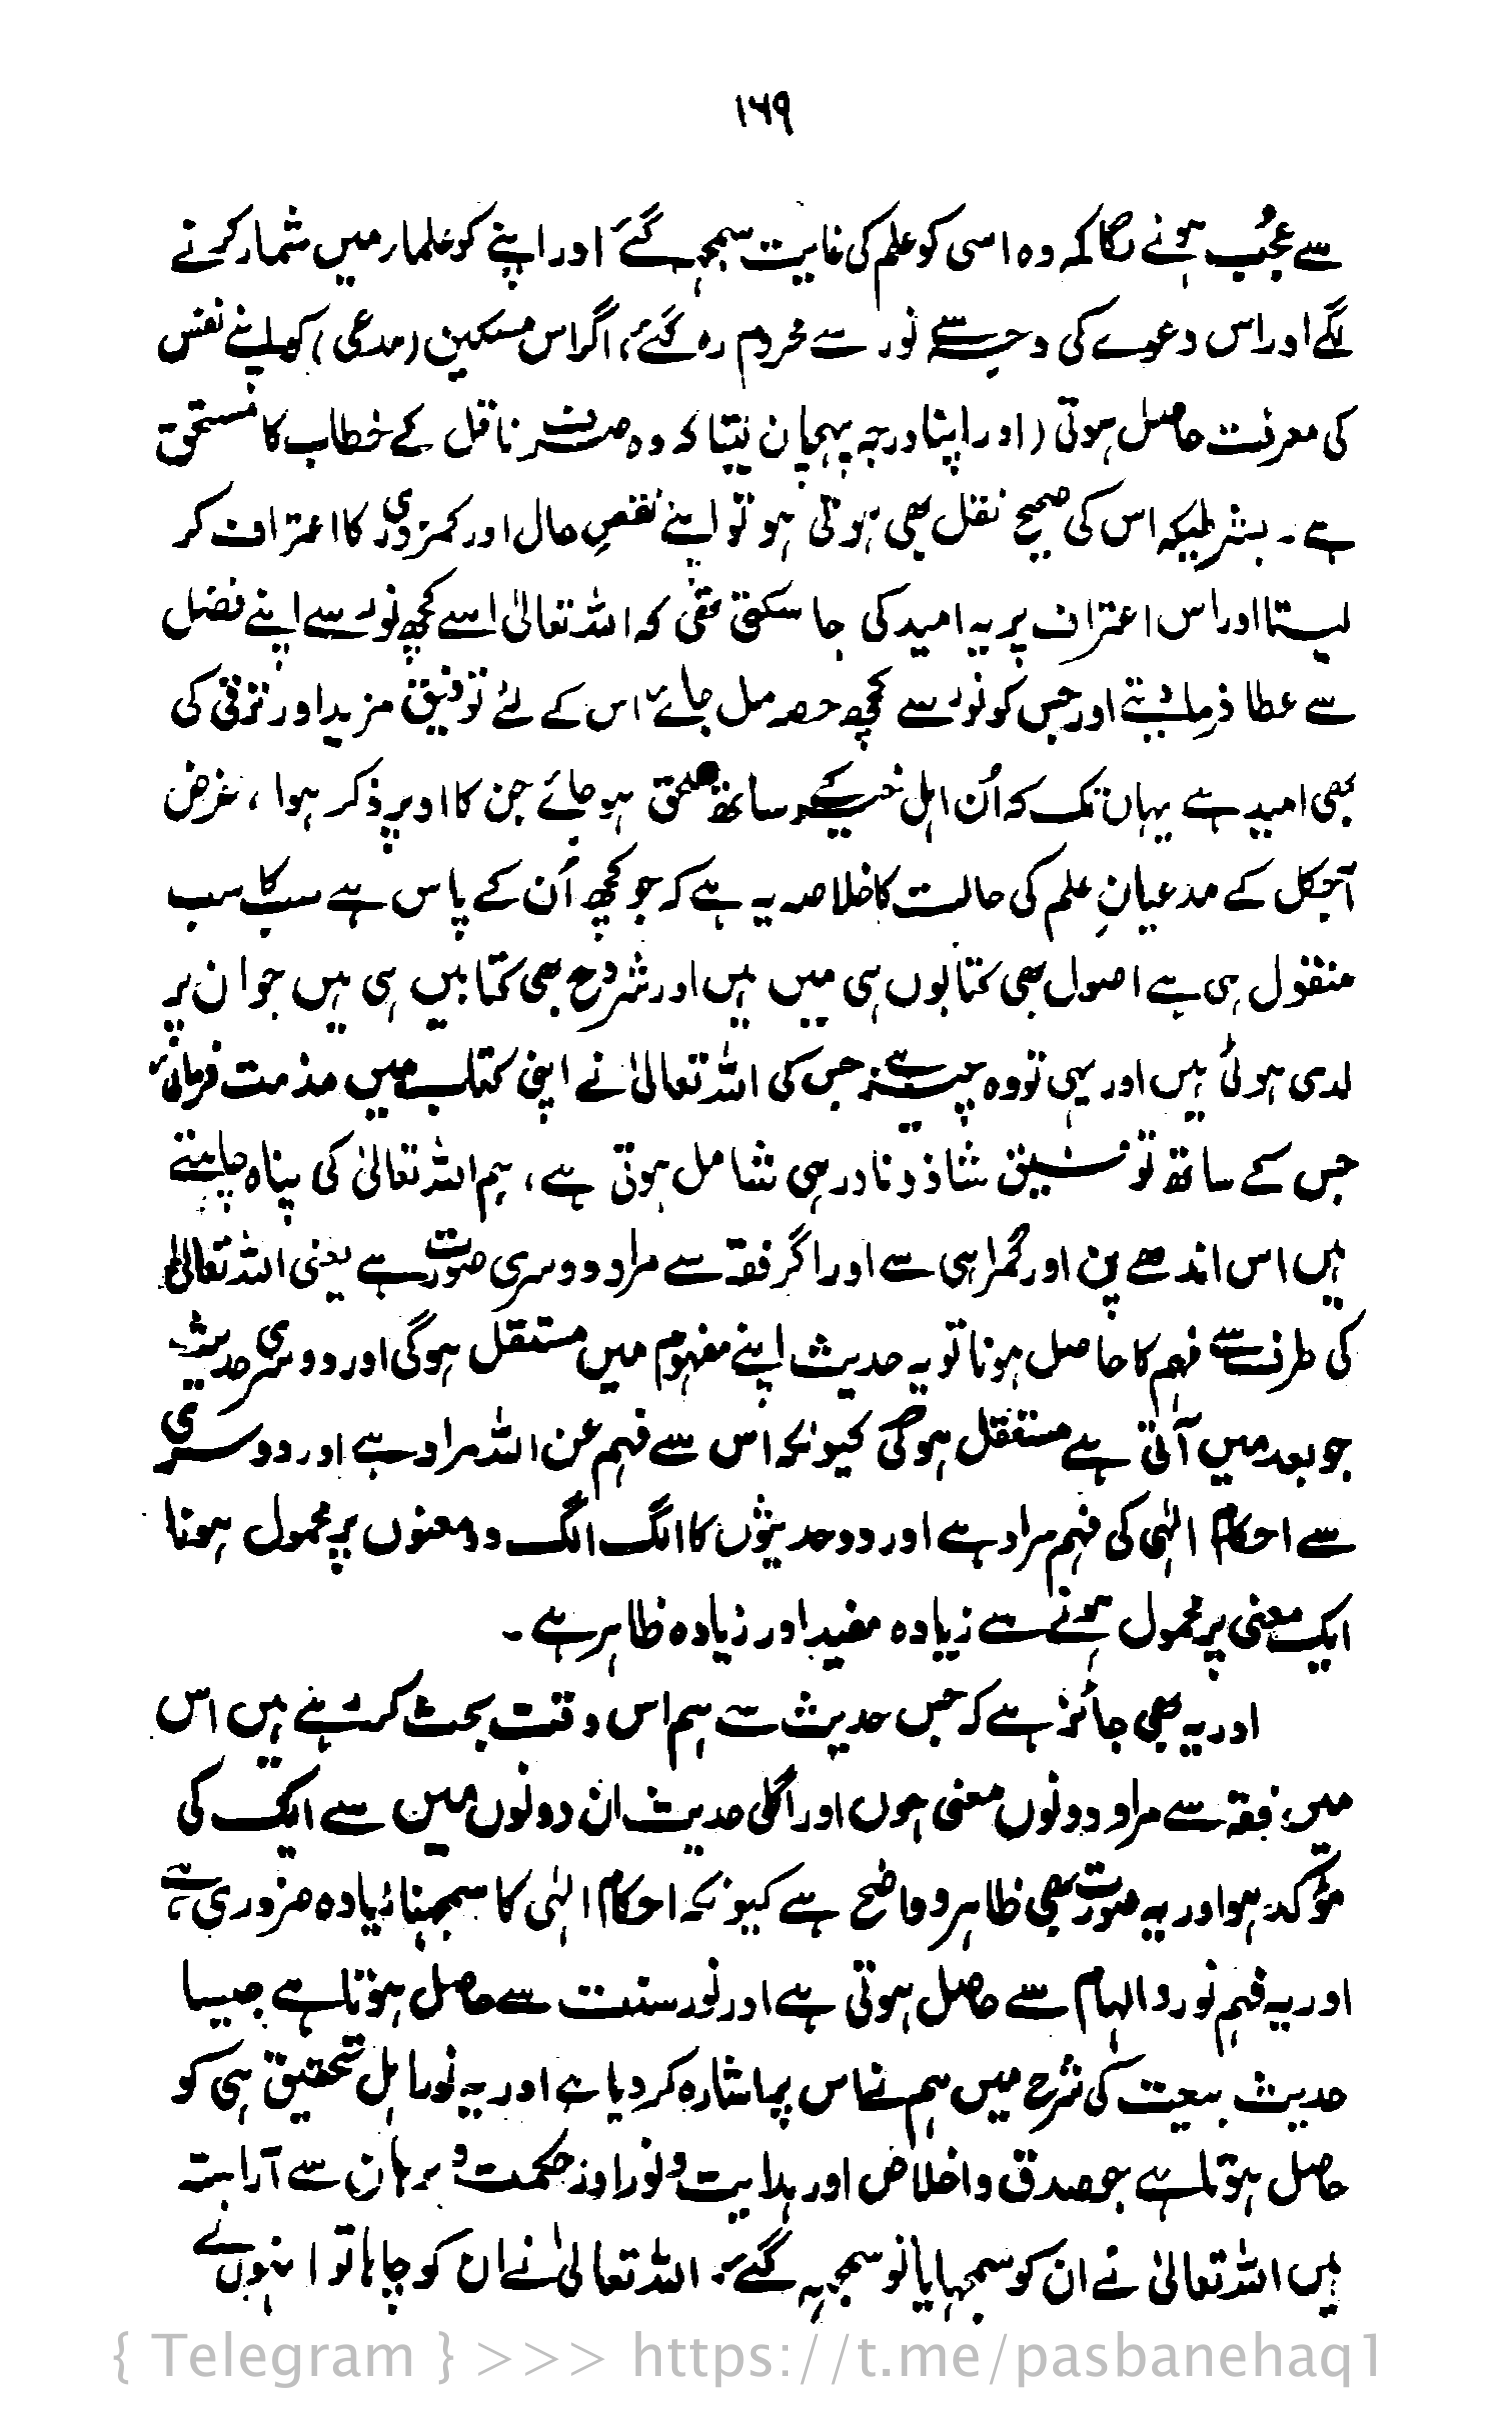 ۱۶۹
سے عجُب ہونے لگا کہ وہ اسی کو علم کی غایت سمجہہ گئے اور اپنے کو علماء میں شمار کرنے
لگے اور اس دعوے کی وجہ سے نور سے محروم رہ گئے، اگر اس مسکین (مدعی) کو اپنے نفس
کی معرفت حاصل ہوتی (اور اپنا درجہ پہچان لیتا کہ وہ صرف ناقل کے خطاب کا مستحق
ہے۔ بشرطیکہ اس کی صحیح نقل بھی ہوتی ہو تو اپنے نقصِ حال اور کمزوری کا اعتراف کر
لیتا اور اس اعتراف پر یہ امید کی جا سکتی تھی کہ اللہ تعالیٰ اسے کچھ نور سے اپنے فضل
سے عطا فرما دیتے اور جس کو نور سے کچھ حصہ مل جائے اس کے لئے توفیق مزید اور ترقی کی
بھی امید ہے یہاں تک کہ اُن اہل خیر کے ساتھ ملحق ہو جائے جن کا اوپر ذکر ہوا، غرض
آجکل کے مدعیانِ علم کی حالت کا خلاصہ یہ ہے کہ جو کچھ اُن کے پاس ہے سب کا سب
منقول ہی ہے اصول بھی کتابوں ہی میں ہیں اور شروح بھی کتابیں ہی ہیں جو ان پر
لدی ہوئی ہیں اور یہی تو وہ چیز ہے جس کی اللہ تعالیٰ نے اپنی کتاب میں مذمت فرمائی
جس کے ساتھ توفیق شاذ و نادر ہی شامل ہوتی ہے، ہم اللہ تعالیٰ کی پناہ چاہتے
ہیں اس اندھے پن اور گمراہی سے اور اگر فقہ سے مراد دوسری صورت ہے یعنی اللہ تعالیٰ
کی طرف سے فہم کا حاصل ہونا تو یہ حدیث اپنے مفہوم میں مستقل ہوگی اور دوسری حدیث
جو بعد میں آتی ہے مستقل ہوگی کیونکہ اس سے فہم عن اللہ مراد ہے اور دوسری
سے احکام الٰہی کی فہم مراد ہے اور دو حدیثوں کا الگ الگ دو معنوں پر محمول ہونا
ایک معنی پر محمول ہونے سے زیادہ مفید اور زیادہ ظاہر ہے۔
اور یہ بھی جائز ہے کہ جس حدیث سے ہم اس وقت بحث کر رہے ہیں اس
میں فقہ سے مراد دونوں معنی ہوں اور اگلی حدیث ان دونوں میں سے ایک کی
مؤکد ہو اور یہ صورت بھی ظاہر و واضح ہے کیونکہ احکام الٰہی کا سمجہنا زیادہ ضروری ہے
اور یہ فہم نور و الہام سے حاصل ہوتی ہے اور نور سنت سے حاصل ہوتا ہے جیسا
حدیث بیعت کی شرح میں ہم نے اس پر اشارہ کر دیا ہے اور یہ نور اہل تحقیق ہی کو
حاصل ہوتا ہے جو صدق و اخلاص اور ہدایت و نور اور حکمت و برہان سے آراستہ
ہیں اللہ تعالیٰ نے ان کو سمجہایا تو سمجہہ گئے، اللہ تعالیٰ نے ان کو چاہا تو انہوں نے
{ Telegram } >>> https://t.me/pasbanehaq1